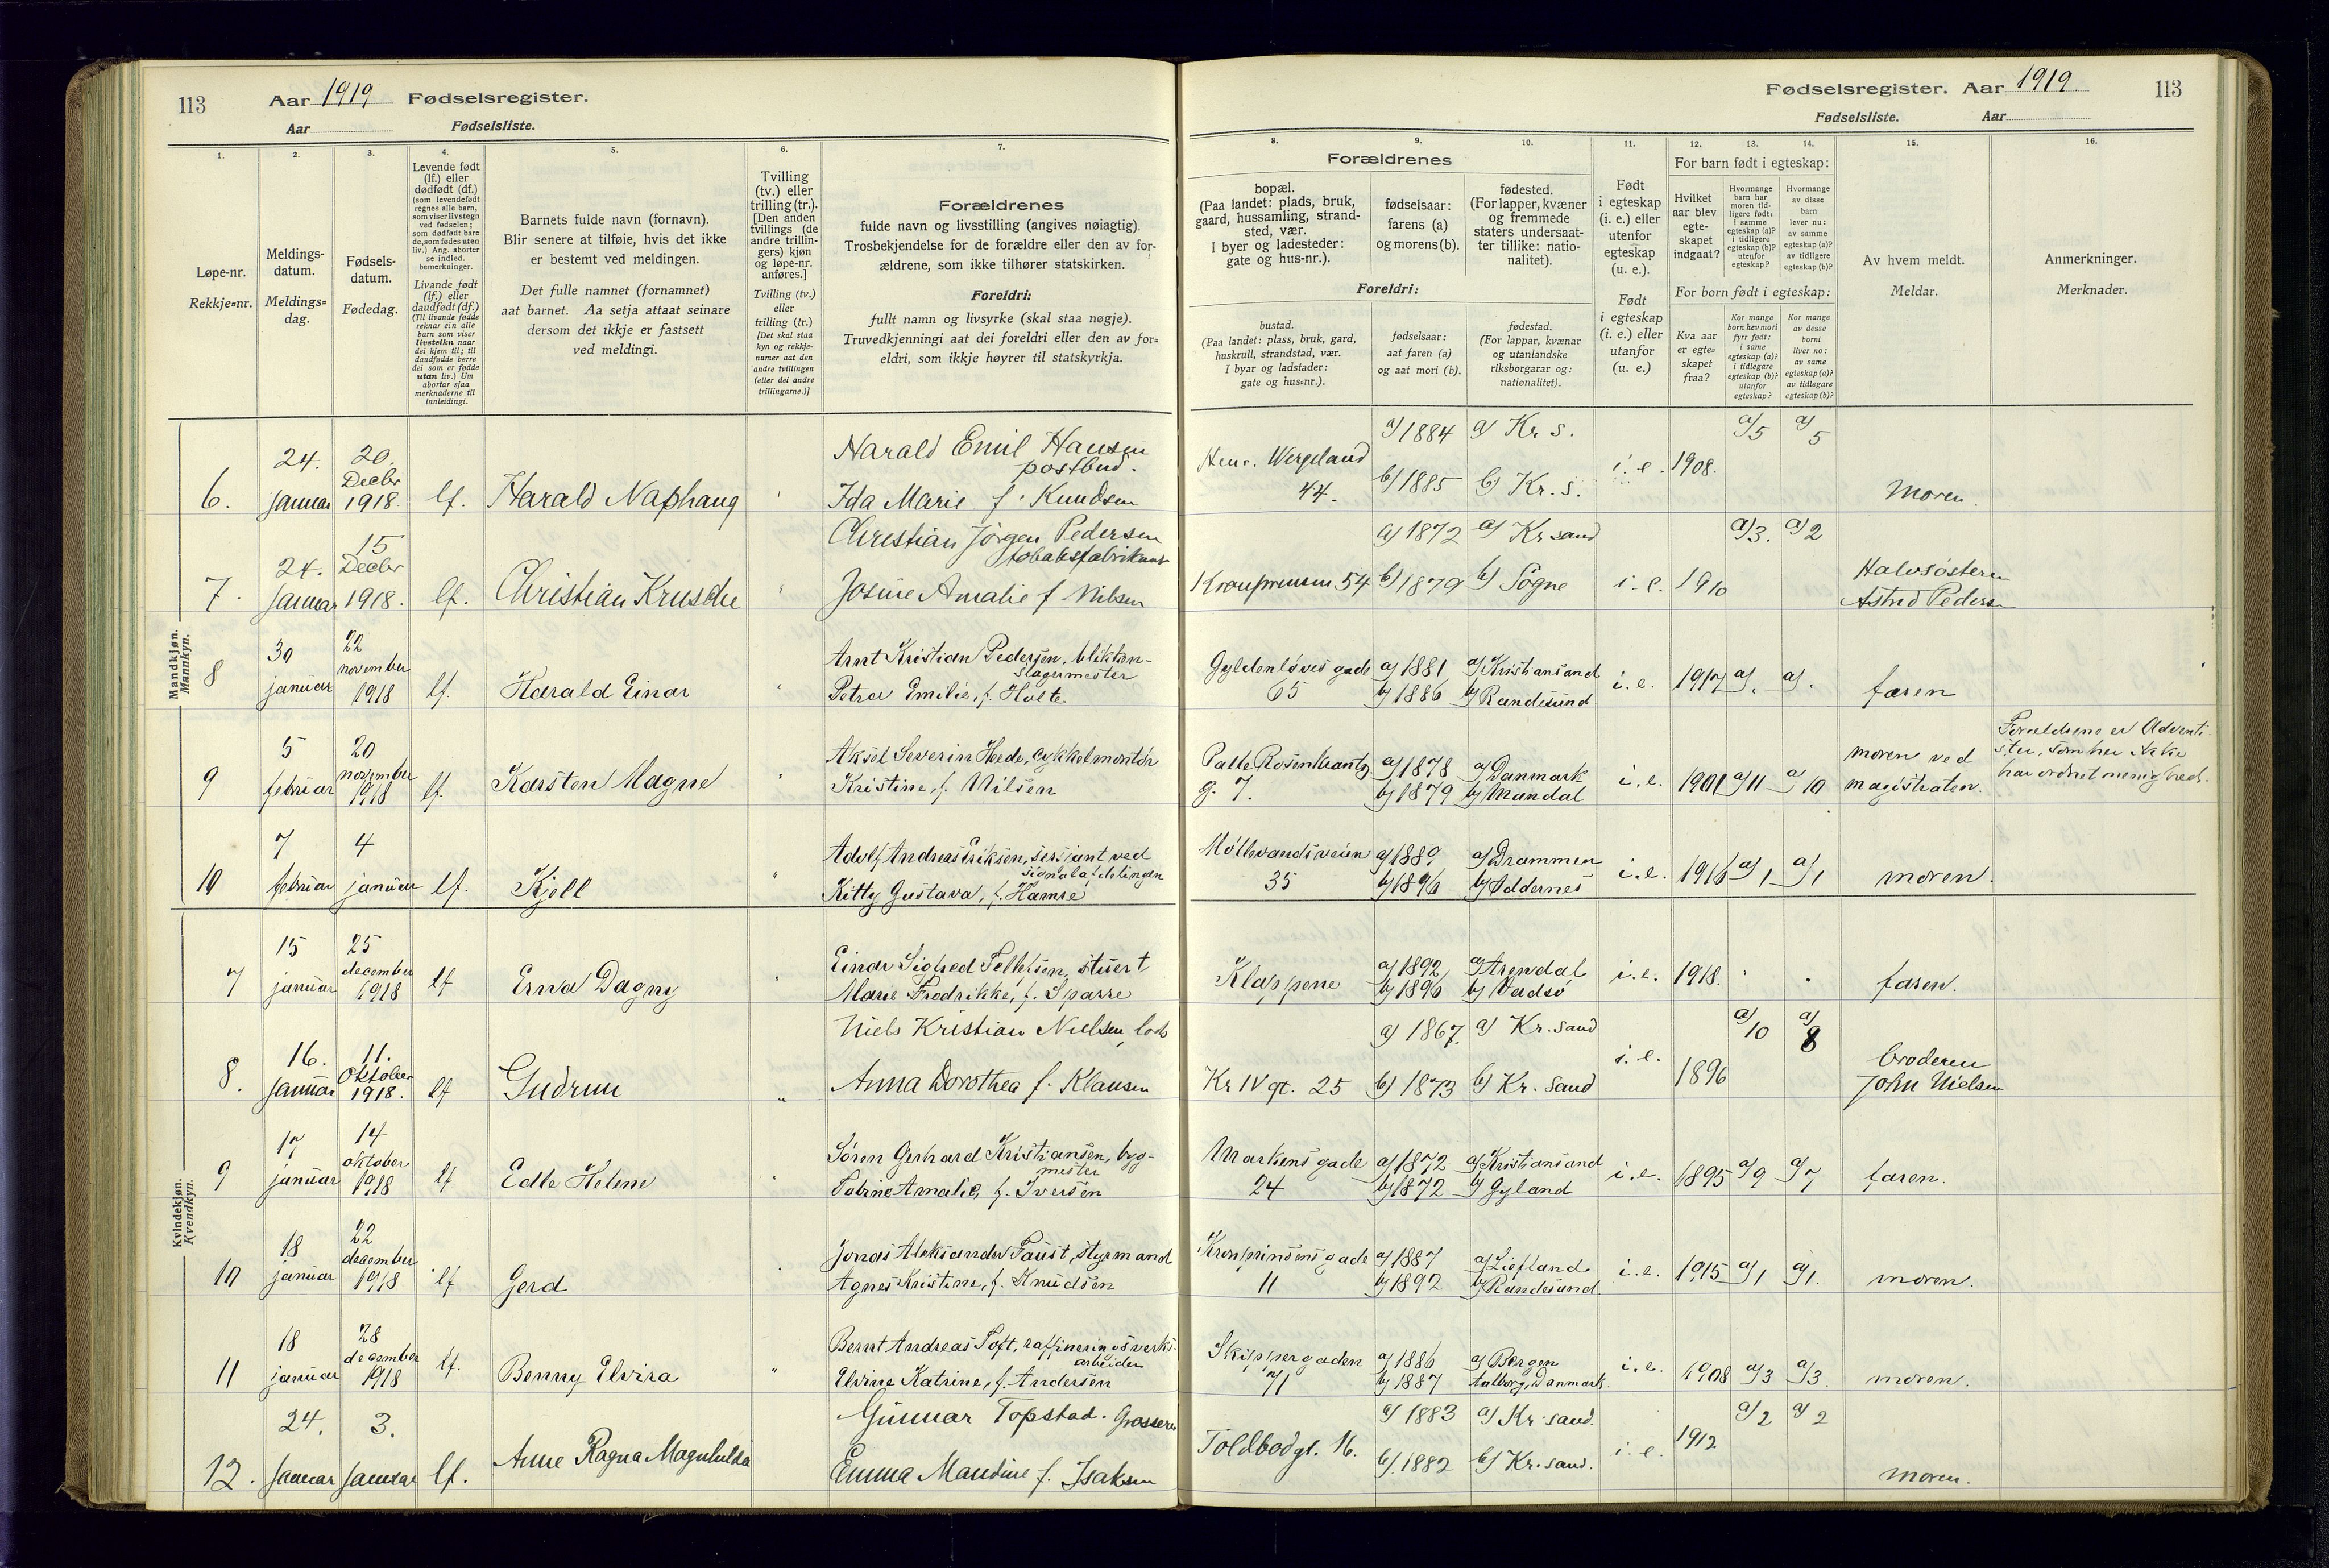 113
Aar 1919 Fødselsregister.
Aar Fødselsliste.
Fødselsregister. Aar 1919.
113
Fødselsliste. Aar
1.
Løpe-nr.
Rekkje=nr.
2.
Meldings-
datum.
Meldings=
dag.
3.
Fødsels-
datum.
Fødedag.
4.
Levende født
(lf.) eller
dødfødt (df.)
(som levendefødt
regnes alle barn,
som viser livstegn
ved fødselen;
som dødfødt bare
de, som fødes uten
liv.) Ang. aborter
se indled.
bemerkninger.
Livande født
(lf.) eller
daudfødt (df.)
(Til livande fødde
reknar ein alle
barn som viser
livsteikn naar
dei kjem til; til
daudfødde berre
dei som er fødde
utan liv.) Um
abortar sjaa
merknaderne til
innleidingi.
5.
Barnets fulde navn (fornavn).
Blir senere at tilføie, hvis det ikke
er bestemt ved meldingen.
Det fulle namnet (fornamnet)
aat barnet. Aa setja attaat seinare
dersom det ikkje er fastsett
ved meldingi.
6.
Tvilling
(tv.) eller
trilling (tr.).
[Den anden
tvillings (de
andre trillin-
gers) kjøn
og løpe-nr.
anføres.]
Tvilling (tv.)
eller
trilling (tr.)
[Det skal staa
kyn og rekkje-
numer aat den
andre tvillingen
(eller dei andre
trillingarne.)]
7.
Forældrenes
fulde navn og livsstilling (angives nøiagtig).
Trosbekjendelse for de forældre eller den av for-
ældrene, som ikke tilhører statskirken.
Foreldri:
fullt namn og livsyrke (skal staa nøgje).
Truvedkjenningi aat dei foreldri eller den av for=
eldri, som ikkje høyrer til statskyrkja.
Forældrenes
8.
bopæl.
(Paa landet: plads, bruk,
gaard, hussamling, strand-
sted, vær.
I byer og ladesteder:
gate og hus-nr.).
9.
fødselsaar:
farens (a)
og morens (b).
10.
fødested.
(For lapper, kvæner
og fremmede
staters undersaat-
ter tillike: natio-
nalitet).
Foreldri:
bustad.
(Paa landet: plass, bruk, gard,
huskrull, strandstad, vær.
I byar og ladstader:
gate og hus=nr.).
fødselsaar:
aat faren (a)
og aat mori (b).
fødestad.
(For lappar, kvænar
og utanlandske
riksborgarar og:
nationalitet).
11.
Født
i egteskap
(i. e.) eller
utenfor
egteskap
(u. e.).
Født
i egteskap
(i. e.) eller
utanfor
(u. e.)
For barn født i egteskap:
12.
Hvilket
aar blev
egte-
skapet
indgaat?
13.
Hvormange
barn har
moren tid-
ligere født:
i samme
egteskap (a)?
i tidligere
egteskap (b)?
utenfor
egteskap?
14.
Hvormange
av disse
barn
lever nu:
av samme
egteskap (a)?
av tidligere
egteskap (b)?
For born født i egteskap:
Kva aar
er egte=
skapet
fraa?
Kor mange
born hev mori
fyrr født:
i same
egteskap (a)?
i tidlegare
egteskap (b)?
utanfor
egteskap?
Kor mange
av desse
borni
liver no:
av same
egteskap (a)?
av tidlegare
egteskap (b)?
15.
Av hvem meldt.
Meldar.
16.
Anmerkninger.
Merknader.
Mandkjøn.
Mannkyn.
6. 24. januar 20. Decbr 1918. lf. Harald Naphaug
Harald Emil Hansen
postbud.
Ida Marie f. Knudsen
Henr. Wergeland
44.
a) 1884 b) 1885
a) Kr. s. b) Kr. s.
i. e. 1908. a) 5 a) 5 Moren.
7. 24. januar 15 Decbr 1918. lf. Christian Krusche
Christian Jörgen Pedersen
tobaksfabrikant
Josine Amalie f. Nilsen
Kronprinsen 54
a) 1872 b) 1879
a) Kr sand b) Sogne
i. e. 1910 a) 3. a) 2
Halvsøsteren
Astrid Pedersen
8 30 januar 22 november 1918 lf. Harald Einar
Arnt Kristian Pedersen, blikken-
slagermester
Petra Emilie, f. Holte
Gyldenløves gade
65
a) 1881 b) 1886
a) Kristiansand b) Randesund
i. e. 1917 a). a). faren
9 5 februar 20 november 1918 lf. Karsten Magne
Aksel Severin Hede, cykkelmontør
Kristine, f. Nilsen
Palle Rosenkrantz
g. 7.
a) 1878 b) 1879
a) Danmark b) Mandal
i. e. 1901 a) 11 a) 10
moren ved
magistraten.
Forældrene er Adventi-
ster, som her ikke
har ordnet menighed.
10 7 februar 4 januar lf. Kjell
Adolf Andreas Eriksen, sersjant ved
signalafdelingen
Kitty Gustava, f. Hamre
Møllevandsveien
35
a) 1889 b) 1896
a) Drammen b) Oddernes
i. e. 1916 a) 1 a) 1 moren.
Kvindekjøn.
Kvendkyn.
7 15 januar 25 december 1918 lf Erna Dagny
Einar Sigfred Tellefsen, stuert
Marie Fredrikke, f. Sparre
Klappene
a) 1892 b) 1896
a) Arendal b) Vadsø
i. e. 1918. faren.
8. 16. januar 11. Oktober 1918. lf Gudrun
Niels Kristian Nielsen, lods
Anna Dorothea f. Klausen
Kr IV gt. 25
a) 1867. b) 1873
a) Kr. sand b) Kr. sand
i. e. 1896 a) 10 a) 8
broderen
John Nielsen
9 17 januar 14 oktober 1918 lf Edle Helene
Søren Gerhard Kristiansen, byg-
mester
Sabine Amalie, f. Iversen
Markens gade
24
a) 1872 b) 1872
a) Kristiansand b) Gyland
i. e. 1895 a) 9 a) 7 faren.
10 18 januar 22 december 1918 lf Gerd
Jonas Aleksander Faust, styrmand
Agnes Kristine, f. Knudsen
Kronprinsens gade
11
a) 1887 b) 1892
a) Liefland b) Randesund
i. e. 1915 a) 1 a) 1. moren.
11 18 januar 28 december 1918 lf. Benny Elvira
Bernt Andreas Toft, raffineringsverks-
arbeider
Elvine Katrine, f. Andersen
Skippergaden
71
a) 1886 b) 1887
a) Bergen Aalborg, Danmark.
i. e. 1908 a) 3 a) 3. moren.
12. 24. januar 3. januar lf. Anne Ragna Magnhilda
Gunnar Topstad. Grosserer
Emma Mandine f. Isaksen
Toldbodgt. 16.
a) 1883 b) 1882
a) Kr. sand. b) Kr. sand.
i. e. 1912 a) 2 a) 2 moren.